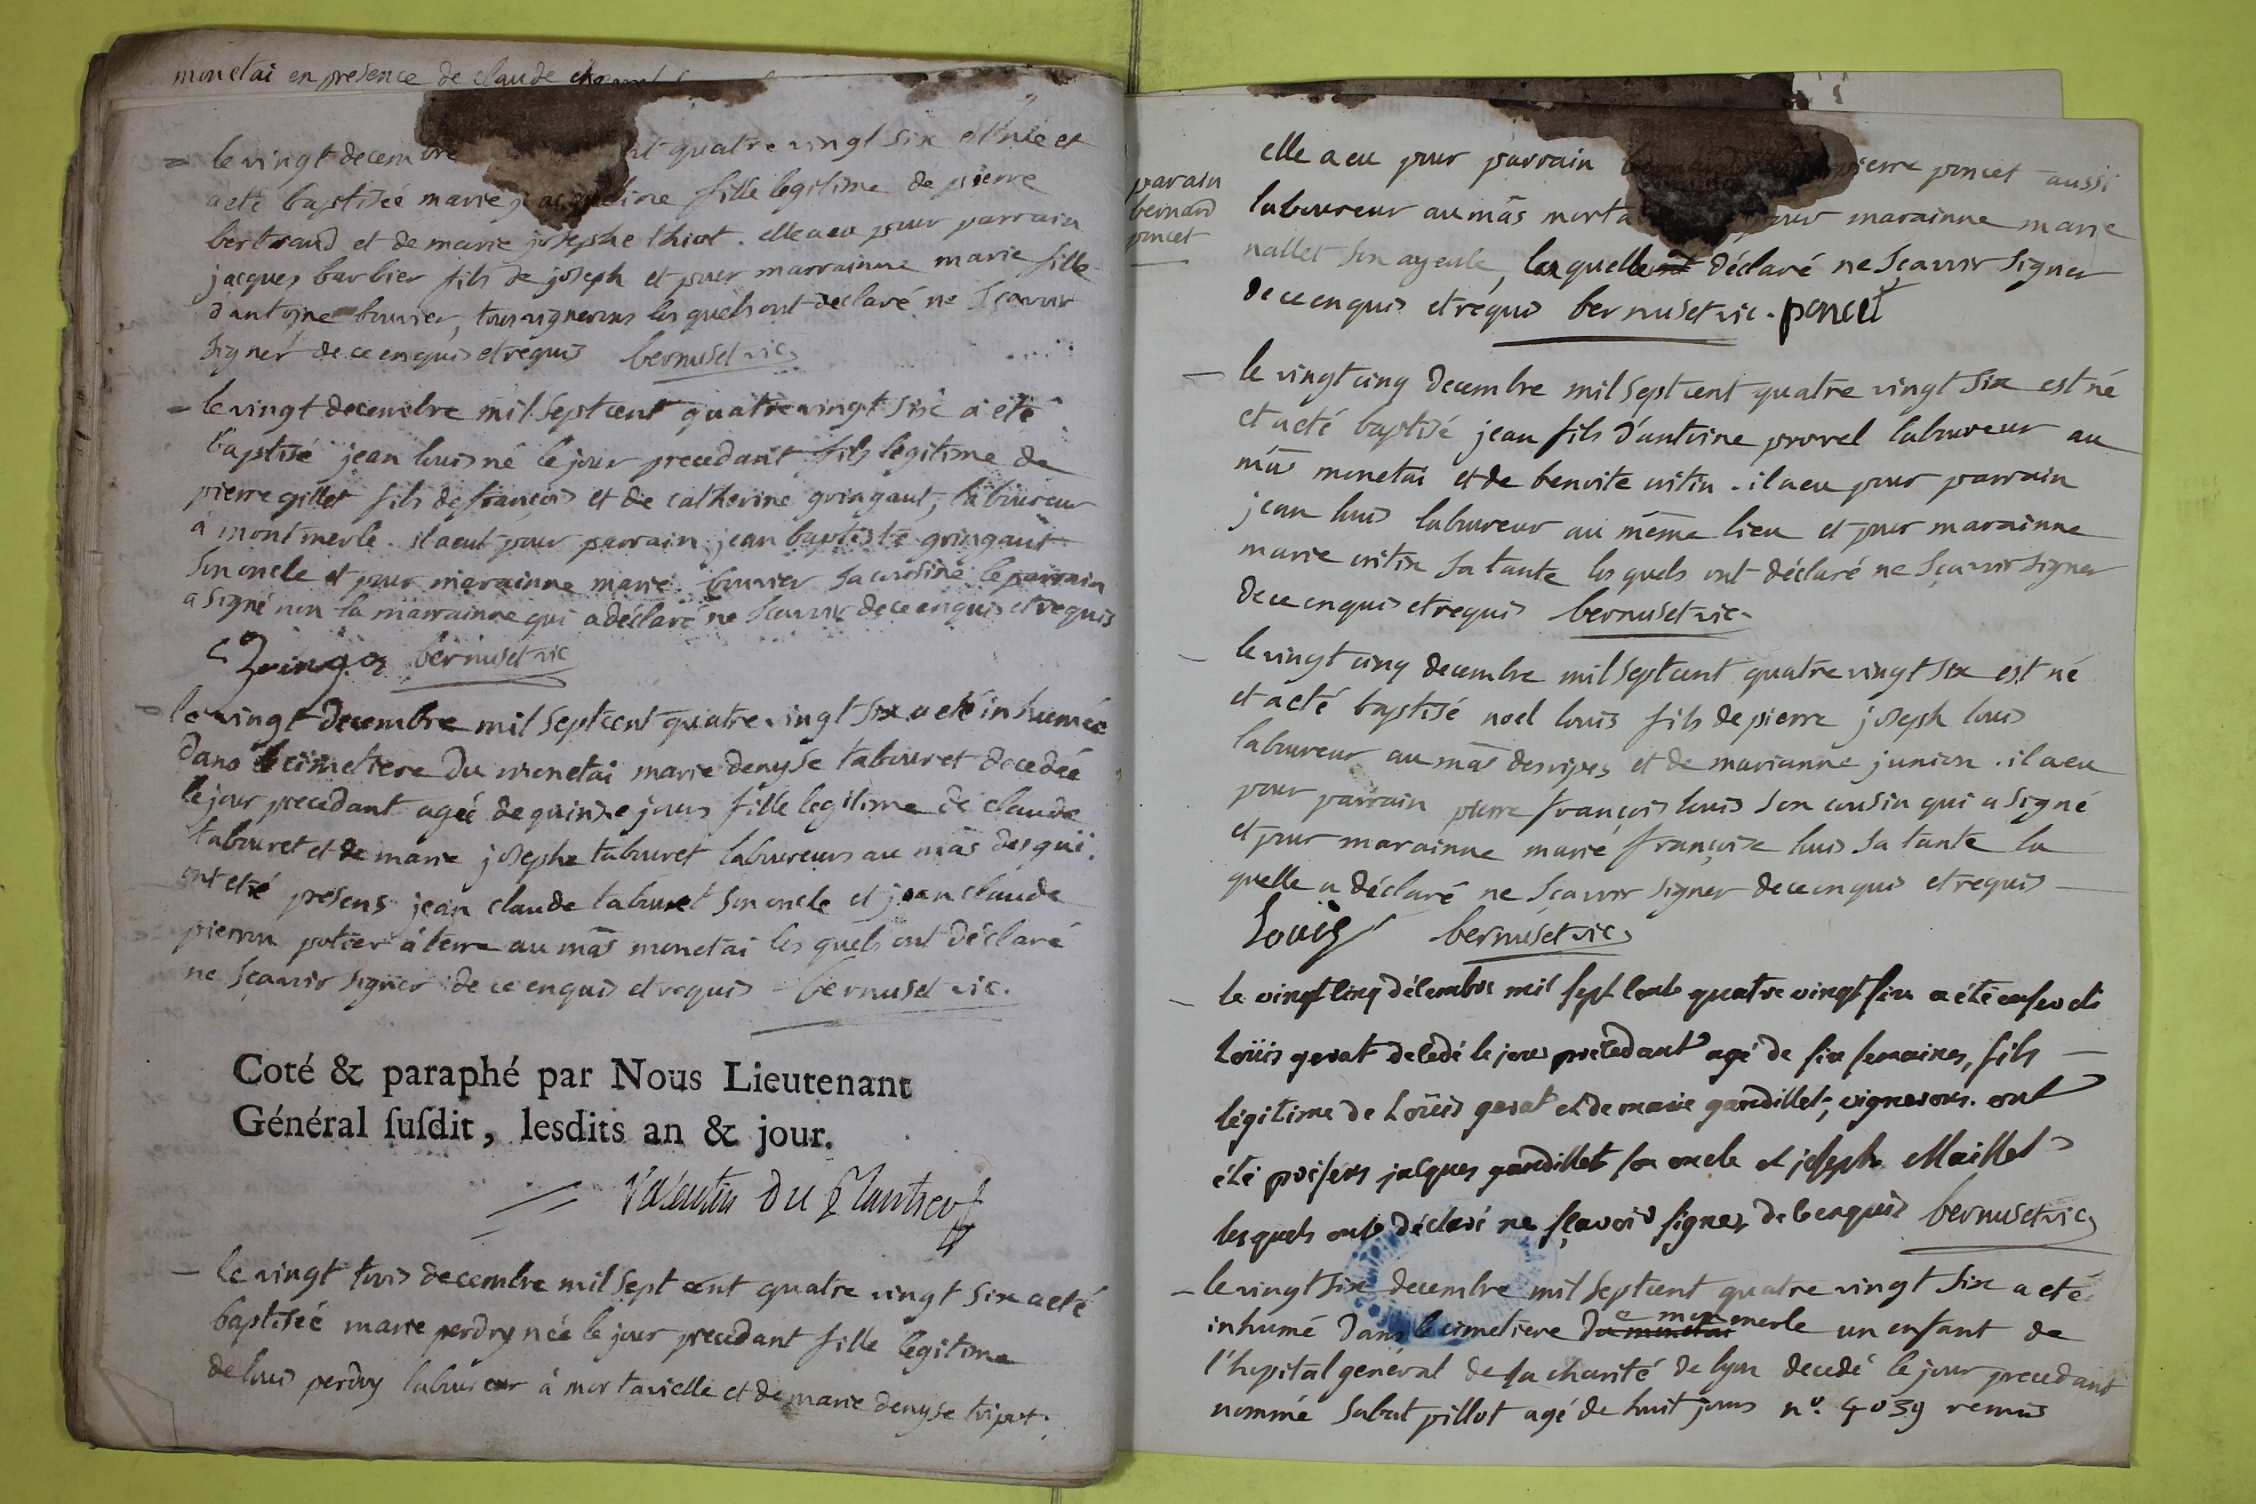 monetai en presence de claude
= le vingt decembre quatre vingt six est née et
a eté baptisée marie jacqueline fille legitime de pierre
bertraud et de marie josephe thiot. elle a eu pour parrain
jacques barbier fils de joseph et pour marrainne marie fille
d'antoine bouvier, tous vignerons les quels ont déclaré ne sçavoir
signer de ce enquis et requis bernuset vic.
= le vingt decembre mil sept cent quatre vingt six a eté
baptisé jean louis né le jour precedant fils legitime de
pierre gillet fils de françois et de catherine gringaut, laboureur
à montmerle. il a eut pour parrain jean baptiste gringaut
son oncle et pour marainne marie bouvier sa cousine le parrain
a signé non la marrainne qui a déclaré ne sçavoir de ce enquis et requis
bernuset vic
le vingt decembre mil sept cent quatre vingt six a eté inhumée
dans le cimetiere du monetai marie denyse tabouret decedée
le jour precedant agée de quinze jours fille legitime de claude
tabouret et de marie josephe tabouret laboureurs au mâs des gui.
ont eté presens jean claude tabouret son oncle et jean claude
pierron potier à terre au mâs monetai les quels ont déclaré
ne sçavoir signer de ce enquis et requis - bernuset vic.
Coté & paraphé par Nous Lieutenant
Général suſdit, lesdits an & jour.
= Valentin Du Plantier
— le vingt trois decembre mil sept cent quatre vingt six a eté
baptisée marie perdry née le jour precedant fille legitime
de louis perdry laboureur à mortavielle et de marie denyse tripot.
parain
bernard
poncet
elle a eu pour parrain pierre poncet aussi
laboureur au mâs pour marainne marie
nallet son ayeule, déclaré ne sçavoir signer
de ce enquis et requis bernuset vic. poncet
— le vingt cinq decembre mil sept cent quatre vingt six est né
et a eté baptisé jean fils d'antoine prorel laboureur au
mâs monetai et de benoite vitin. il a eu pour parrain
jean louis laboureur au même lieu et pour marainne
marie vitin sa tante les quels ont déclaré ne sçavoir signer
de ce enquis et requis bernuset vic.
— le vingt cinq decembre mil sept cent quatre vingt six est né
et a eté baptisé noel louis fils de pierre joseph louis
laboureur au mâs des ripes et de marianne junion. il a eu
pour parrain pierre françois louis son cousin qui a signé
et pour marainne marie françoise louis sa tante la
quelle a déclaré ne sçavoir signer de ce enquis et requis —
Louis bernuset vic.
— le vingt cinq décembre mil sept cent quatre vingt six a été enseveli
Loüis gerat decedé le jour précedant agé de six semaines, fils —
légitime de Loüis gerat et de marie gandillet, vignerons. ont
été présens jacques gandillet son oncle et joseph Maillet
lesquels ont déclaré ne sçavoir signer de ce enquis bernuset vic.
— le vingt six decembre mil sept cent quatre vingt six a eté
inhumé dans le cimetiere de monmerle un enfant de
l'hopital general de la charité de lyon decedé le jour precedant
nommé sabat pillot agé de huit jours n°. 4039 remis